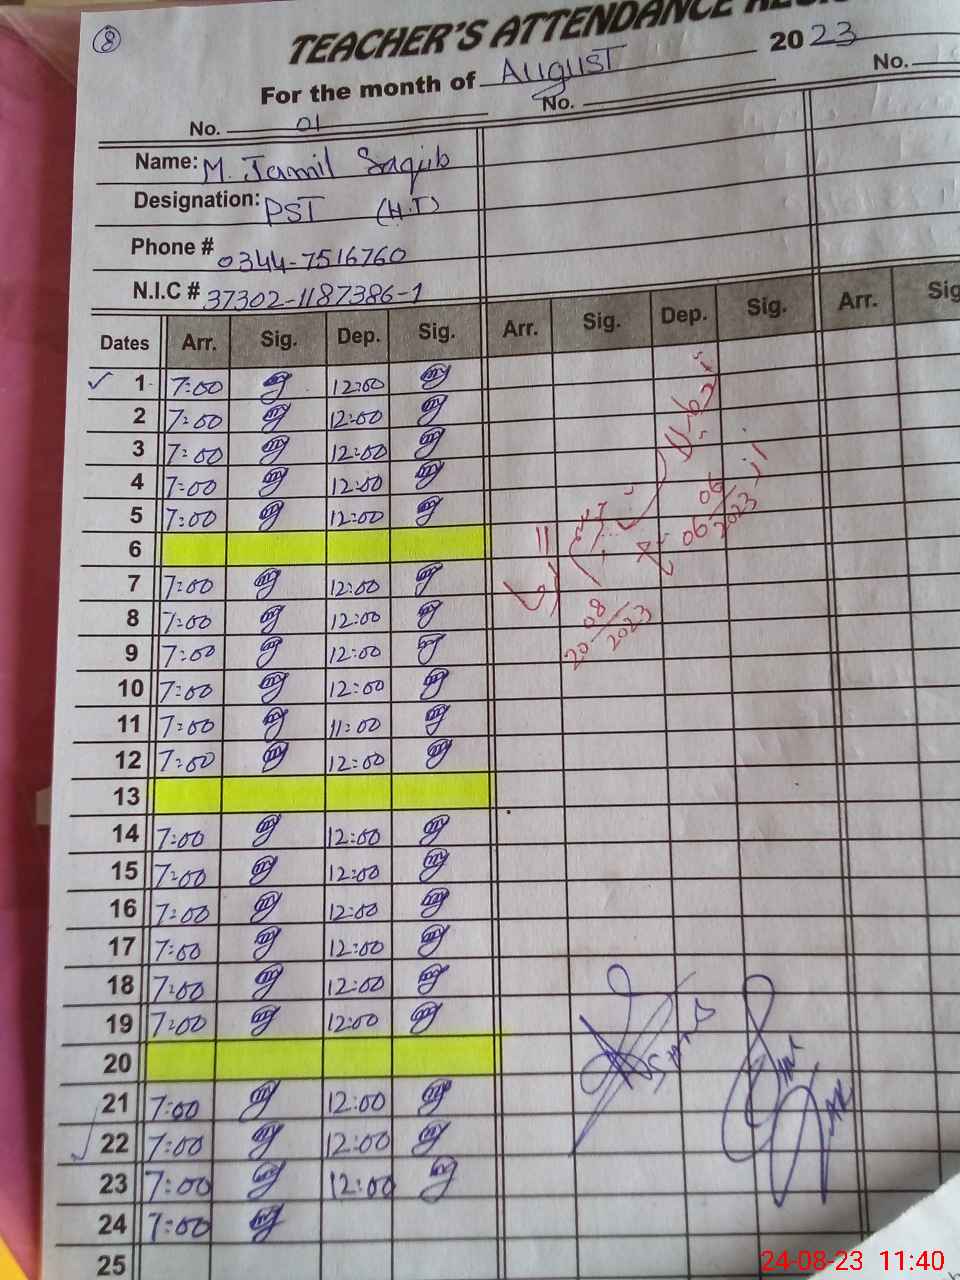 8
TEACHER'S ATTENDANCE
For the month of August 2023
No. 01 No. No.
Name: M. Jamil Saqib
Designation: PST (H.T)
Phone # 0344-7516760
N.I.C # 37302-1187386-1
Dates Arr. Sig. Dep. Sig. Arr. Sig. Dep. Sig. Arr. Sig
1 7:00 12:00
2 7:00 12:00
3 7:00 12:00
4 7:00 12:00
5 7:00 12:00
6
7 7:00 12:00
8 7:00 12:00
9 7:00 12:00
10 7:00 12:00
11 7:00 11:00
12 7:00 12:00
13
14 7:00 12:00
15 7:00 12:00
16 7:00 12:00
17 7:00 12:00
18 7:00 12:00
19 7:00 12:00
20
21 7:00 12:00
22 7:00 12:00
23 7:00 12:00
24 7:00
25
06-06/2023
20-08/2023
24-08-23 11:40